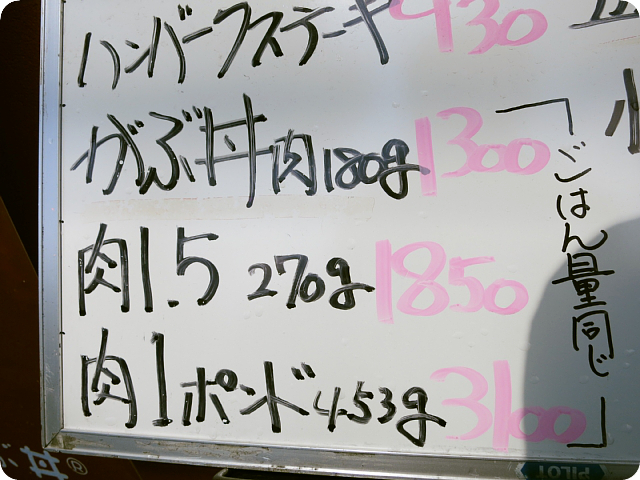 ハンバーグステーキ 430
がぶ丼 肉180g 1300
肉1.5 270g 1850
肉1ポンド 453g 3100
「ごはん量同じ」
丼®
PILOT